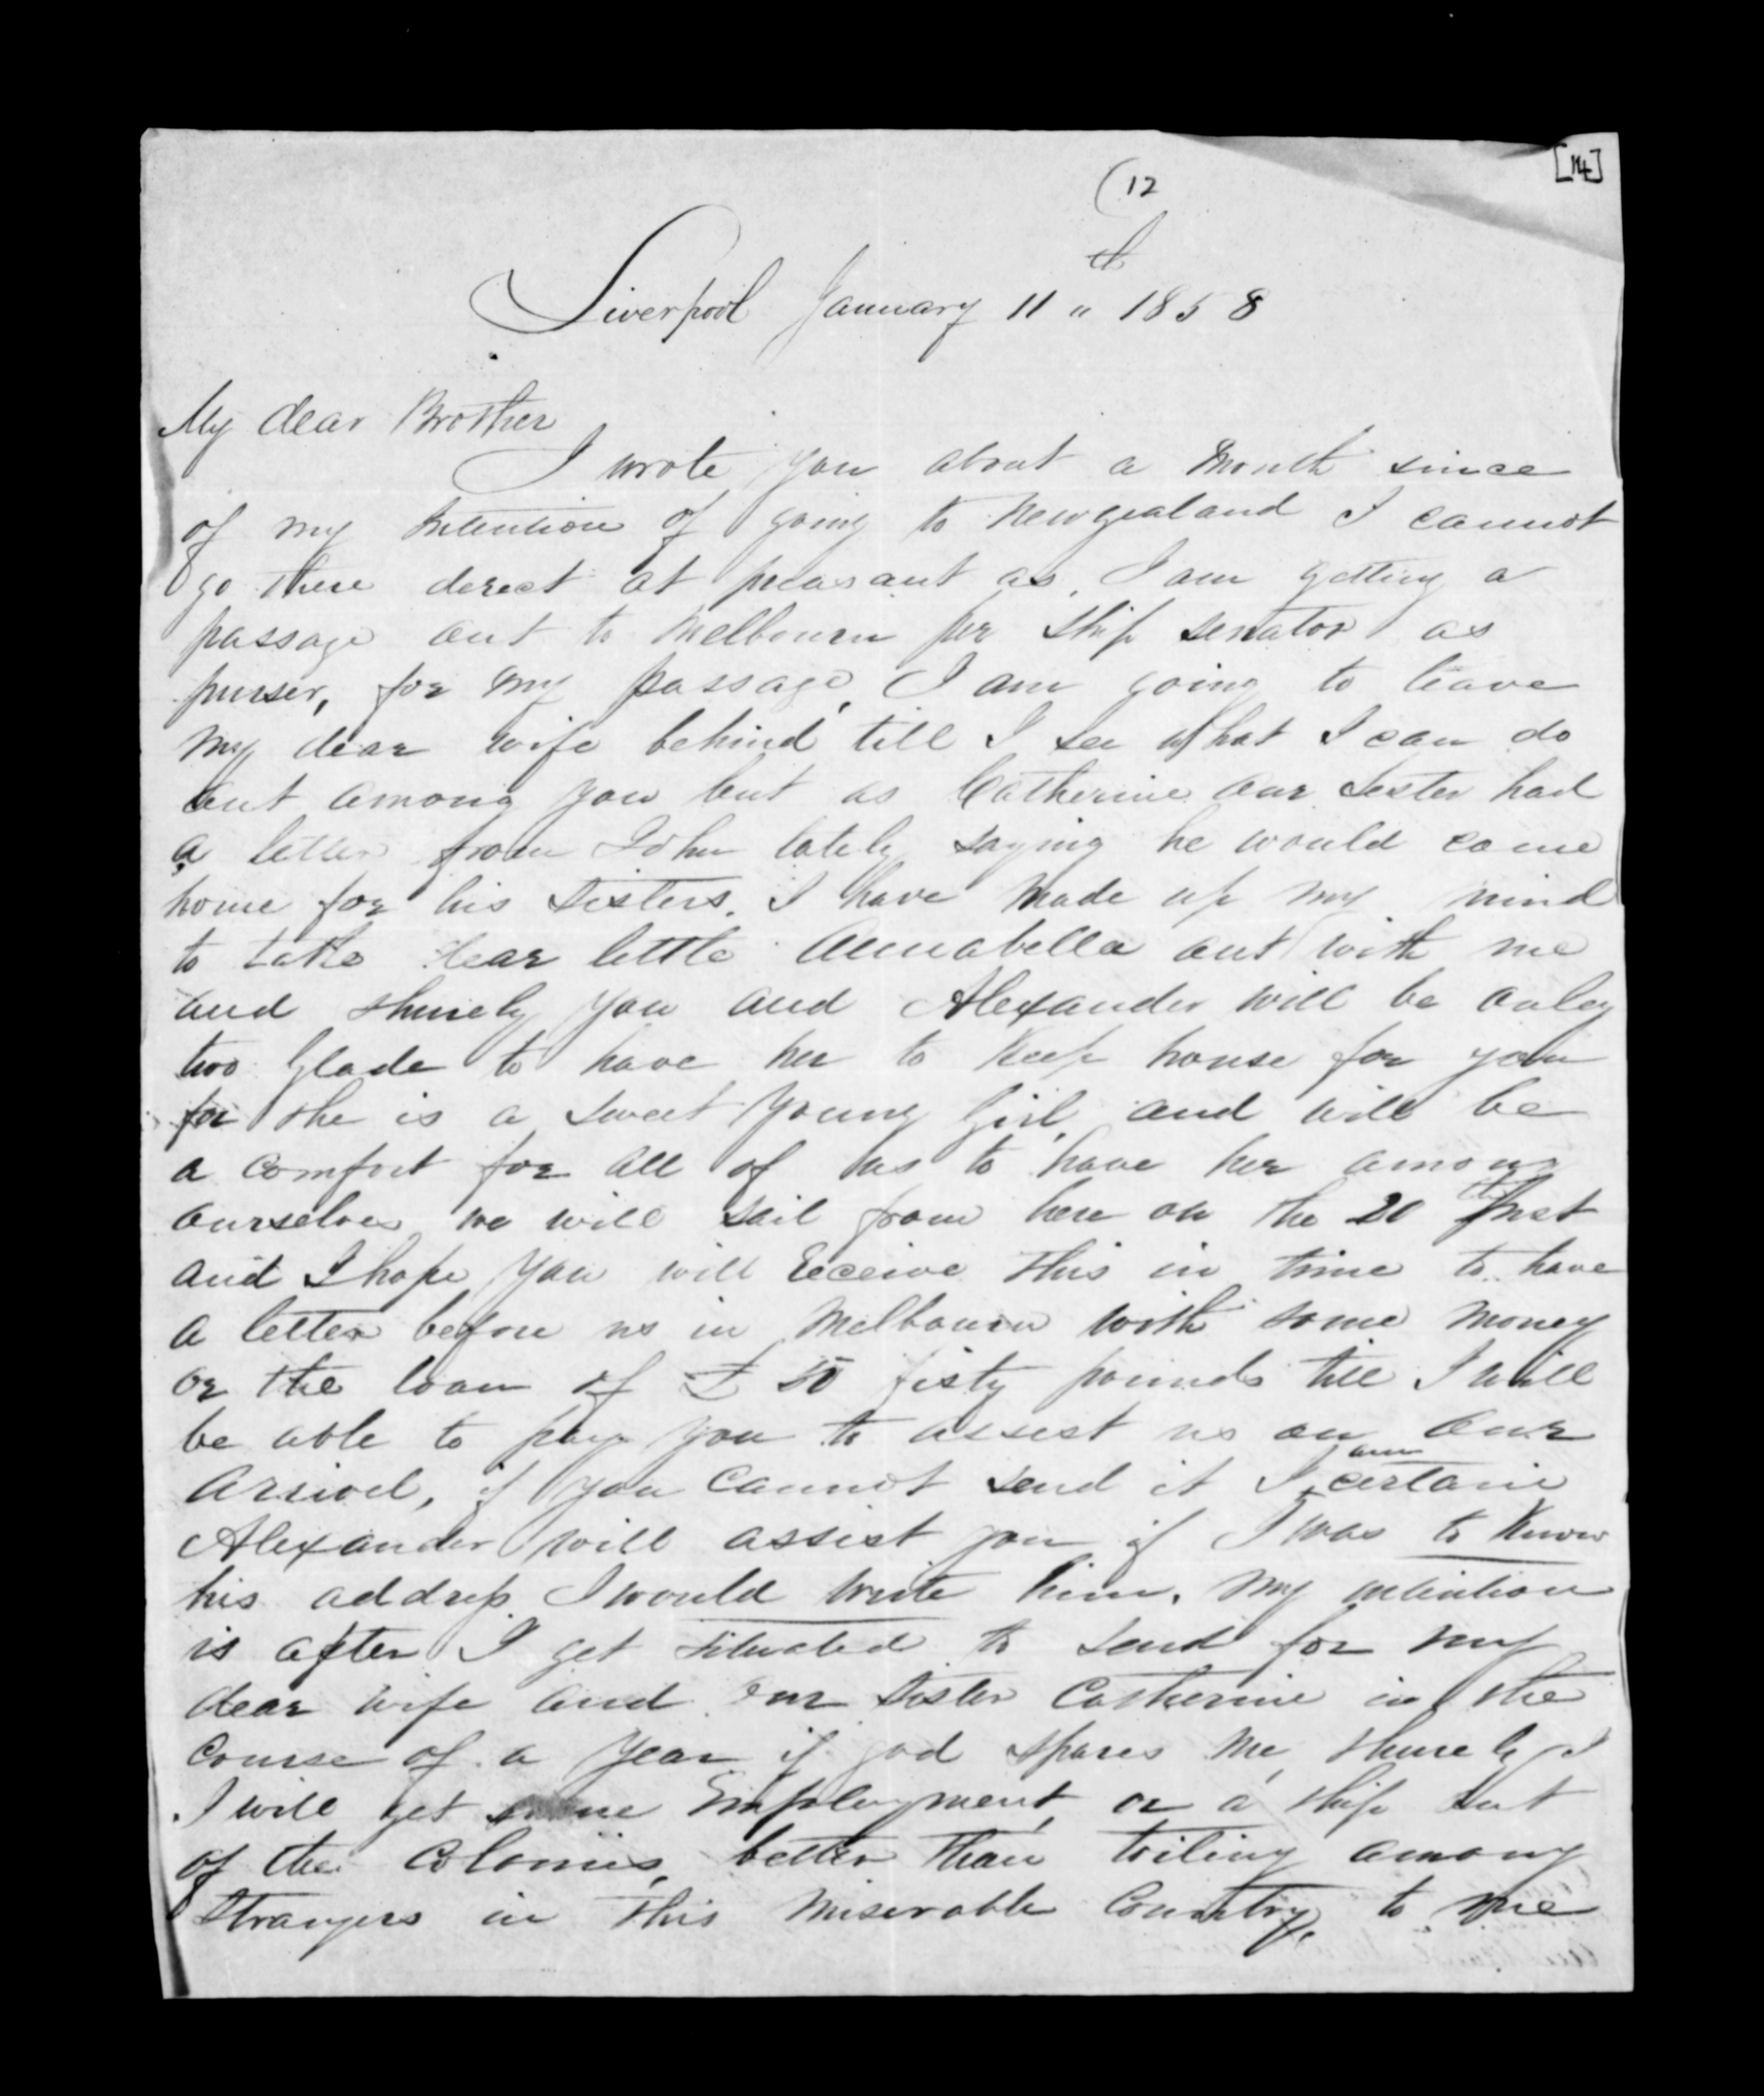 [14]
(12
Liverpool January 11th " 1858
My dear Brother
I wrote you about a month since
of my intention of going to Newzealand I cannot
go there derect at preasant as I am getting a
passage out to Melbourn per Ship Senator as
purser, for my passage, I am going to leave
my dear wife behind till I see what I can do
out among you but as Catherine our Sester had
a letter from John lately saying he would come
home for his Sisters. I have made up my mind
to take dear little Annabella out with me
and shurely you and Alexander will be only
two Glade to have her to Keep house for you
for she is a sweet Young Girl, and will be
a comfort for all of us to have her among
ourselves we will sail from here on the 20th Inst
and I hope you will receive this in time to have
a letter before us in Melbourn with some money
or the loan of £50 fifty pounds till I will
be able to pay you to assest us on our
arrivel, if you cannot send it I am certain
Alexander will assist you if I was to Know
his address I would write him. My intention
is after I get situated to send for my
dear wife and our Sister Catherine in the
course of a Year if god spares me, shurely I
I will get some Employment, or a ship out
of the Colonies, better than toiling among
Strangers in this miserable Country, to me